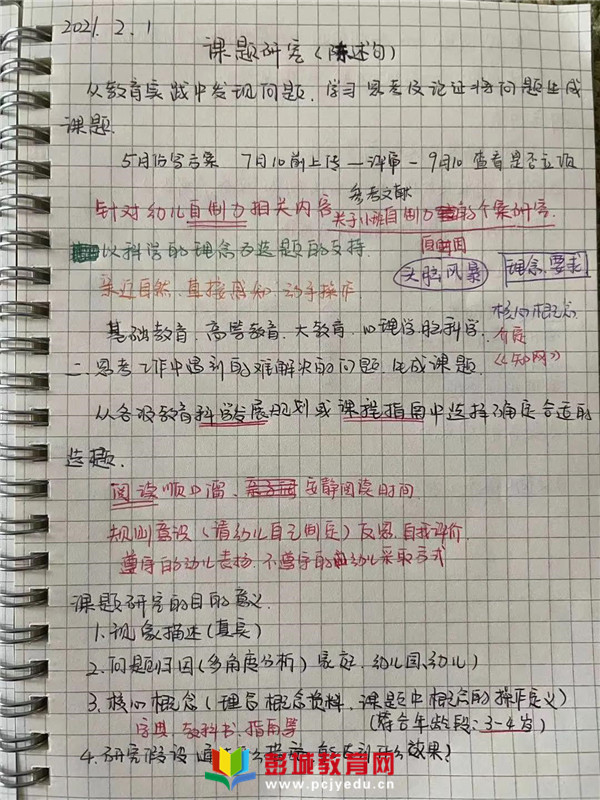 2021. 2. 1
课题研究(陈述句)
从教育实践中发现问题、学习思考及论证将问题生成
课题.
5月份写方案 7月10前上传—评审—9月10 查看是否立项
参考文献
针对幼儿自制力相关内容 关于小班自制力的个案研究.
以科学的理念为选题的支持.
大脑风暴 理念、要求
亲近自然、直接感知、动手操作
核心概念
基础教育、高等教育、大教育、心理学脑科学.
界定
二.思考工作中遇到的难解决的问题.生成课题.
《知网》
从各级教育科学发展规划或课程指南中选择确定合适的
选题.
阅读顺口溜. 安静阅读时间
规则意识(请幼儿自己制定)反思.自我评价.
遵守的幼儿表扬.不遵守的幼儿采取方式
课题研究的目的意义.
1.现象描述(真实)
2.问题归因(多角度分析)家庭.幼儿园、幼儿)
3.核心概念(理念概念资料、课题中概念的操作定义)
字典、教科书、指南等 (符合年龄段:3-4岁)
4.研究假设 通过 效果?
彭城教育网
www.pcjyedu.cn